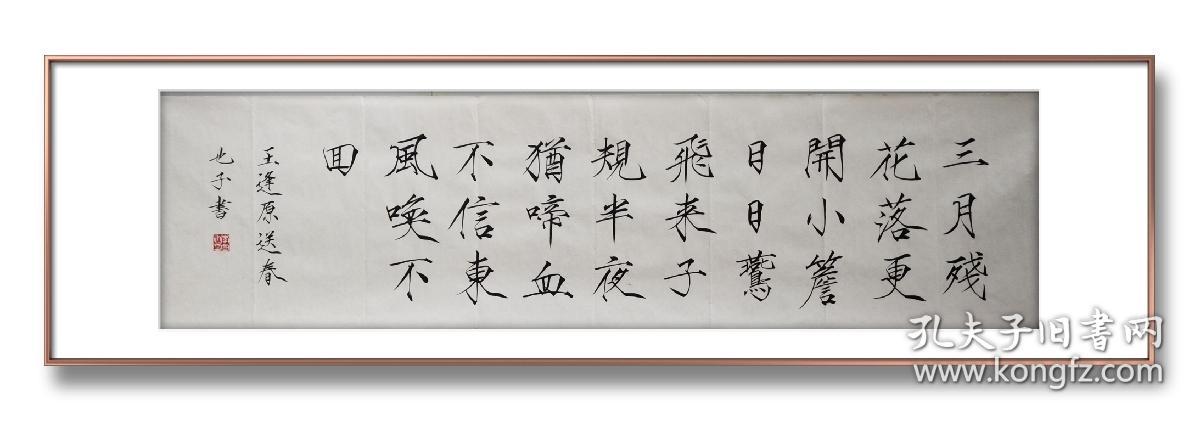 三月殘
花落更
開小簷
日日鷰
飛来子
規半夜
猶啼血
不信東
風喚不
囬
王逢原送春
也予書
孔夫子旧书网
www.kongfz.com